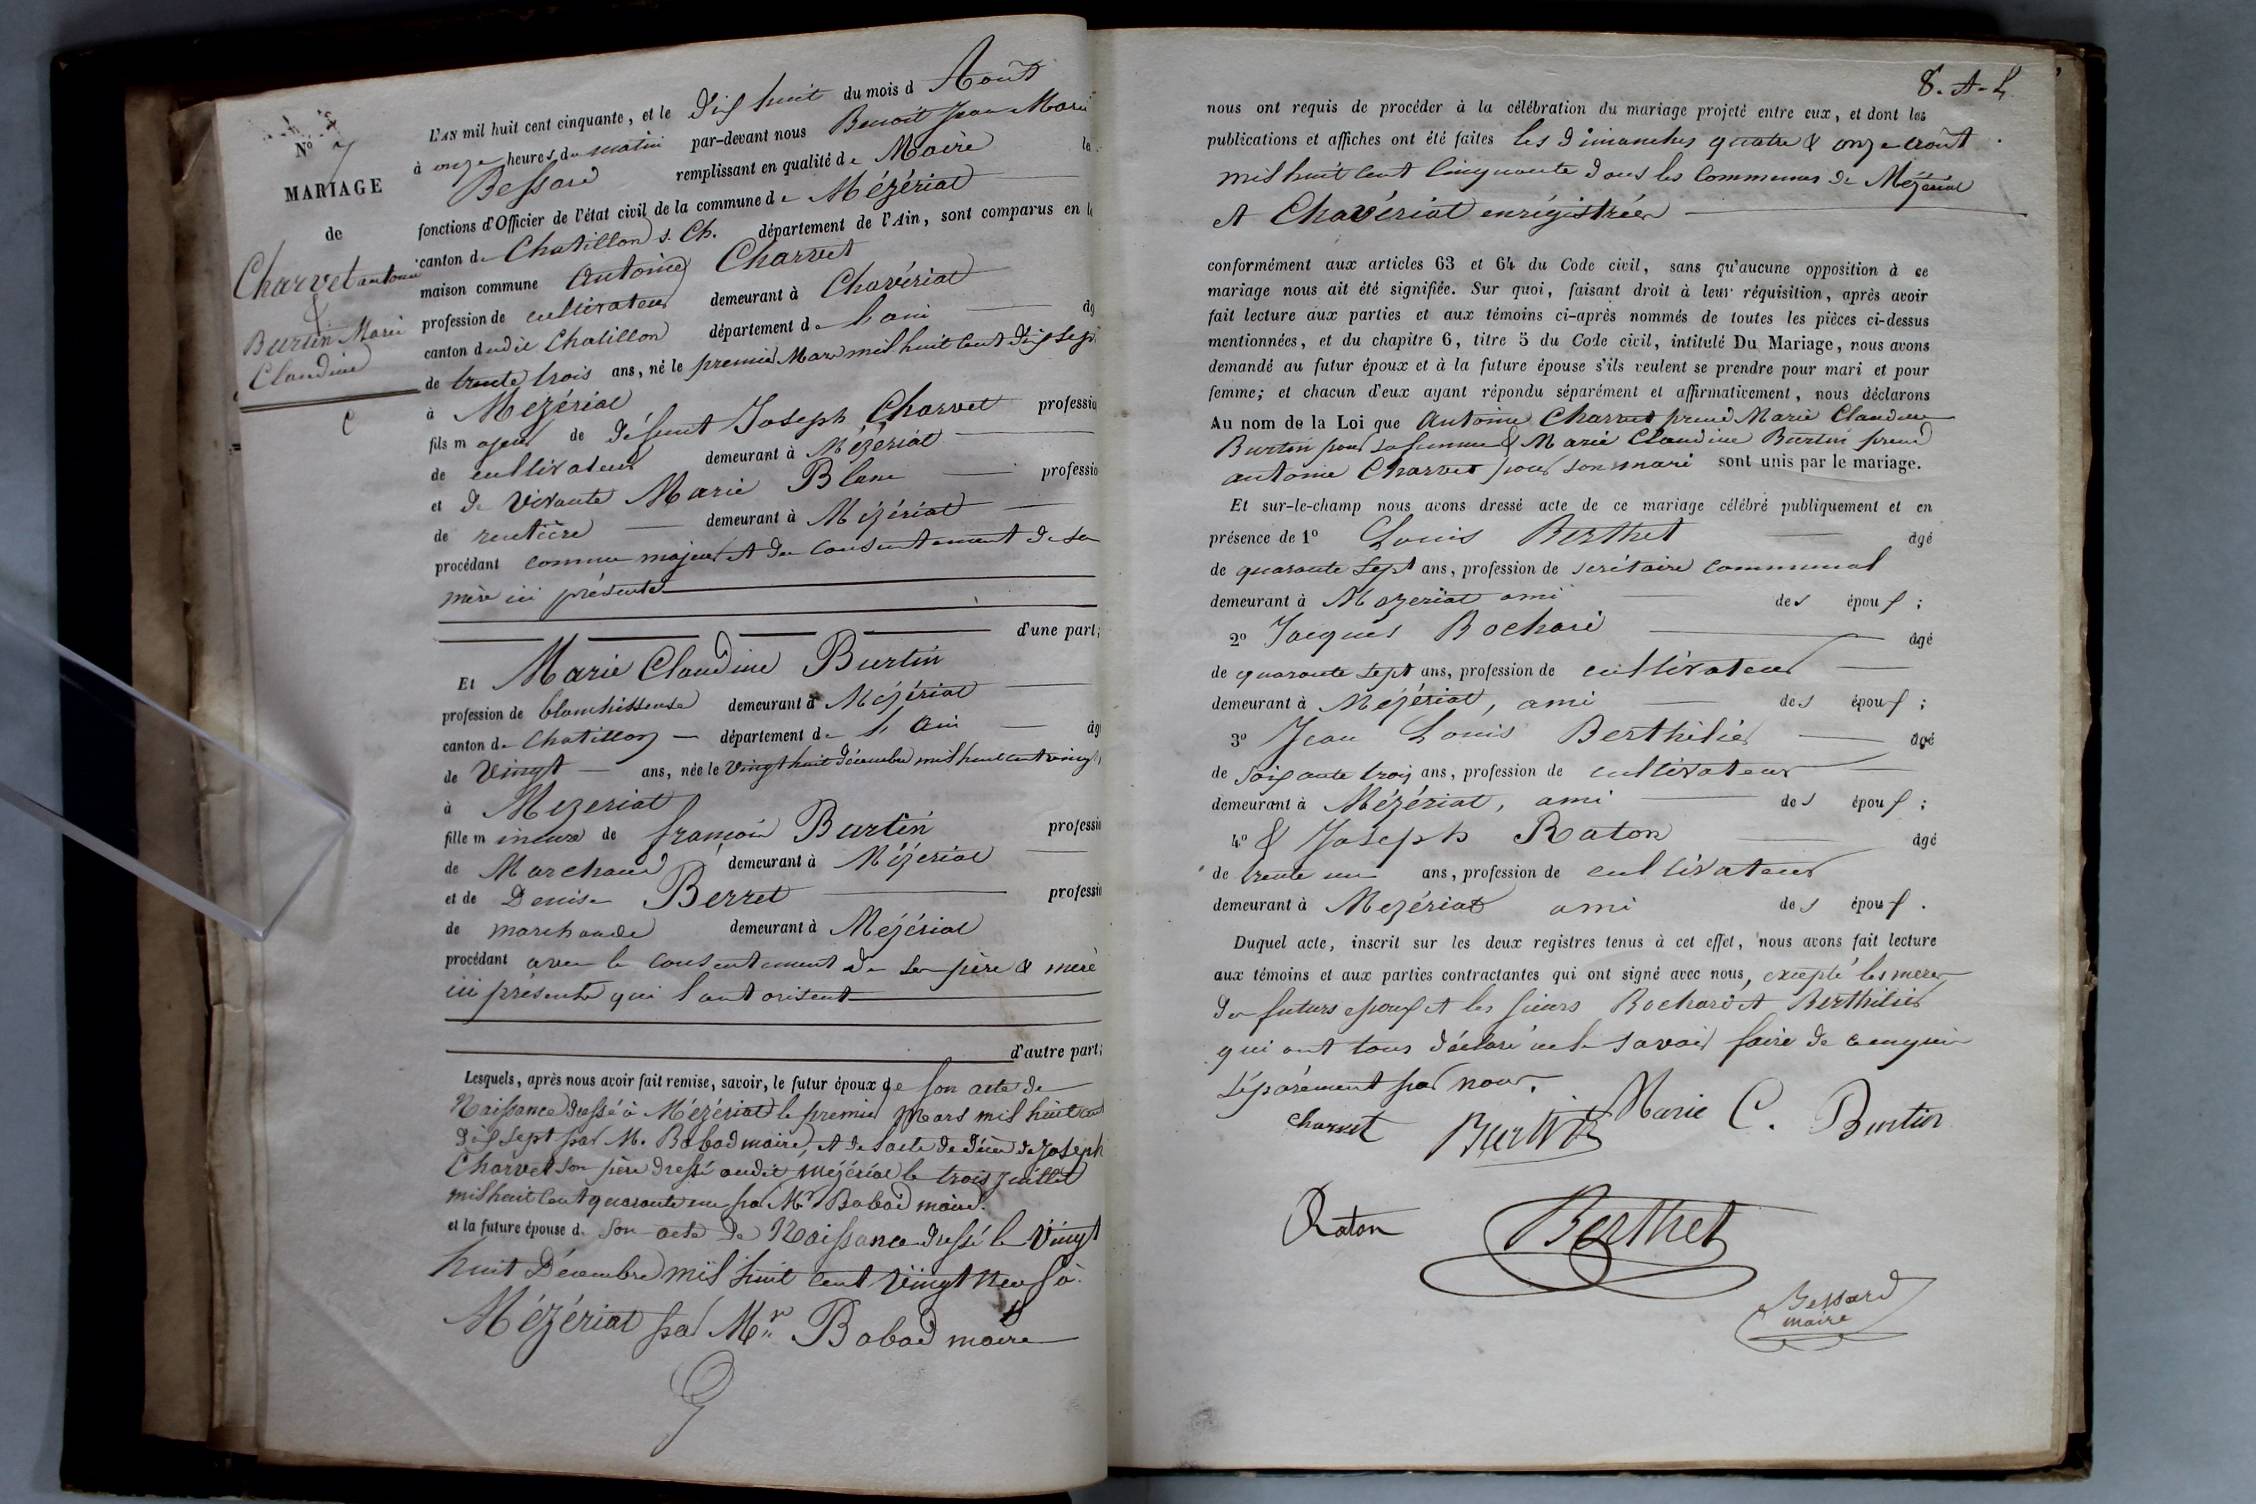 N° 7
MARIAGE
de
Charvet antoine
&
Burtin Marie
Claudine
L'AN mil huit cent cinquante, et le dix huit du mois d Août
à onze heures du matin par-devant nous Benoit Jean Marie
Bessard remplissant en qualité de Maire les
fonctions d'Officier de l'état civil de la commune de Mézériat
canton de Chatillon s. Ch. département de l'Ain, sont comparus en la
maison commune Antoine Charvet
profession de cultivateur demeurant à Chavériat
canton dudit Chatillon département de l'ain âg
de trente trois ans, né le premier Mars mil huit cent dix sept
à Mezériat
fils majeur de défunt Joseph Charvet professio
de cultivateur demeurant à Mézériat
et de vivante Marie Blanc professio
de rentière demeurant à Mézériat
procédant comme majeur et du consentement de sa
mère ici présente
d'une part;
Et Marie Claudine Burtin
profession de blanchisseuse demeurant à Mézériat
canton de Chatillon département de l'Ain âg
de Vingt ans, née le Vingt huit décembre mil huit cent vingt
à Mezeriat
fille mineure de françois Burtin professio
de Marchand demeurant à Mézériat
et de Denise Berret professio
de marchande demeurant à Mézériat
procédant avec le consentement de ses père & mère
ici présents qui l'autorisent
d'autre part;
Lesquels, après nous avoir fait remise, savoir, le futur époux de son acte de
Naissance dressé à Mézériat le premier Mars mil huit cent
dix sept par M. Babad maire, et de l'acte de décès de Joseph
Charvet son père dressé audit Mézériat le trois juillet
mil huit cent quarante un par Mr Babad maire.
et la future épouse d. son acte de Naissance dressé le Vingt
huit Décembre mil huit cent Vingt neuf à
Mézériat par Mr Babad maire
8. A-L
nous ont requis de procéder à la célébration du mariage projeté entre eux, et dont les
publications et affiches ont été faites les dimanches quatre & onze août
mil huit cent Cinquante dans les Communes de Mézériat
et Chavériat enrégistrées
conformément aux articles 63 et 64 du Code civil, sans qu'aucune opposition à ce
mariage nous ait été signifiée. Sur quoi, faisant droit à leur réquisition, après avoir
fait lecture aux parties et aux témoins ci-après nommés de toutes les pièces ci-dessus
mentionnées, et du chapitre 6, titre 5 du Code civil, intitulé Du Mariage, nous avons
demandé au futur époux et à la future épouse s'ils veulent se prendre pour mari et pour
femme; et chacun d'eux ayant répondu séparément et affirmativement, nous déclarons
Au nom de la Loi que Antoine Charvet prend Marie Claudine
Burtin pour sa femme & Marie Claudine Burtin prend
antoine Charvet pour son mari sont unis par le mariage.
Et sur-le-champ nous avons dressé acte de ce mariage célébré publiquement et en
présence de 1° Louis Berthet âgé
de quarante sept ans, profession de secrétaire communal
demeurant à Mezeriat ami des époux;
2° Jacques Bochard âgé
de quarante sept ans, profession de cultivateur
demeurant à Mézériat, ami des époux;
3° Jean Louis Berthilier âgé
de soixante trois ans, profession de cultivateur
demeurant à Mézériat, ami des époux;
4° & Joseph Raton âgé
de trente un ans, profession de cultivateur
demeurant à Mezériat ami des époux.
Duquel acte, inscrit sur les deux registres tenus à cet effet, nous avons fait lecture
aux témoins et aux parties contractantes qui ont signé avec nous, excepté les meres
des futurs epoux et les sieurs Bochard et Berthilier
qui ont tous déclaré ne le savoir faire de ce enquis
séparément par nous.
Charvet Burtin Marie C. Burtin
Raton Berthet
Bessard
maire